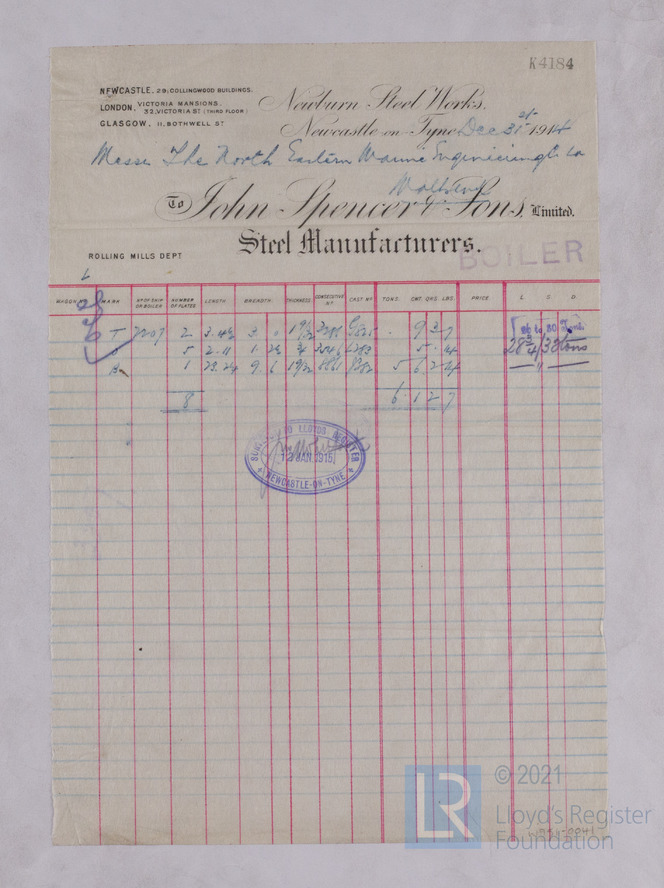 K4184
NEWCASTLE, 29, COLLINGWOOD BUILDINGS.
LONDON, VICTORIA MANSIONS, 32, VICTORIA ST (THIRD FLOOR)
GLASGOW, 11, BOTHWELL ST
Newburn Steel Works.
Newcastle-on-Tyne Dec 31st 1914
Messrs The North Eastern Marine Engineering Co
Wallsend
To John Spencer & Sons, Limited.
Steel Manufacturers.
ROLLING MILLS DEPT
BOILER
WAGON No MARK No OF SHIP OR BOILER NUMBER OF PLATES LENGTH BREADTH THICKNESS CONSECUTIVE No CAST No TONS. CWT. QRS. LBS. PRICE. L. S. D.
T 2 3. 9 3 7
26 to 30 Tons
5 2.11 5 . 14
28 3/4 / 32 tons
B 1 9 6 19/32 5 6 2 14
8 6 1 2 7
SURVEYOR TO LLOYDS REGISTER
13 JAN 1915
NEWCASTLE-ON-TYNE
LR
© 2021
Lloyd's Register
Foundation